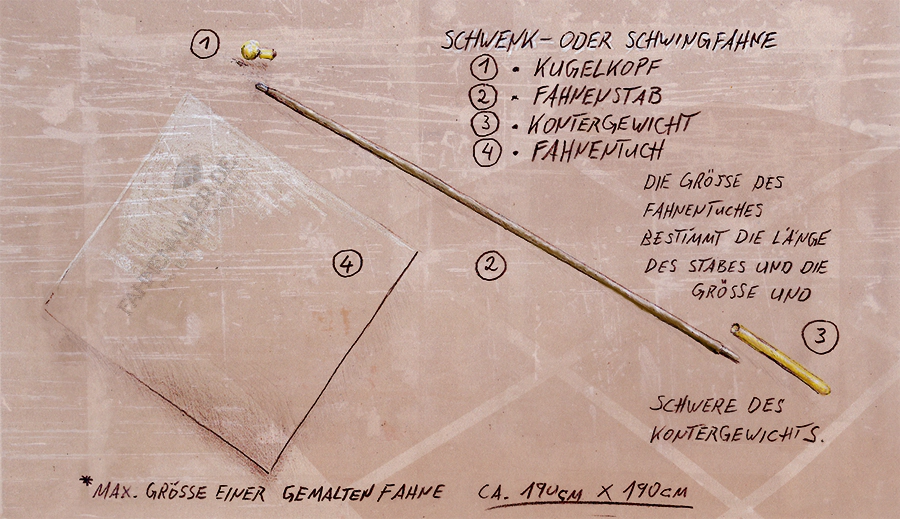 SCHWENK- ODER SCHWINGFAHNE
1 • KUGELKOPF
2 • FAHNENSTAB
3 • KONTERGEWICHT
4 • FAHNENTUCH
DIE GRÖSSE DES
FAHNENTUCHES
BESTIMMT DIE LÄNGE
DES STABES UND DIE
GRÖSSE UND
SCHWERE DES
KONTERGEWICHTS.
1
2
3
4
*MAX. GRÖSSE EINER GEMALTEN FAHNE CA. 190CM X 190CM